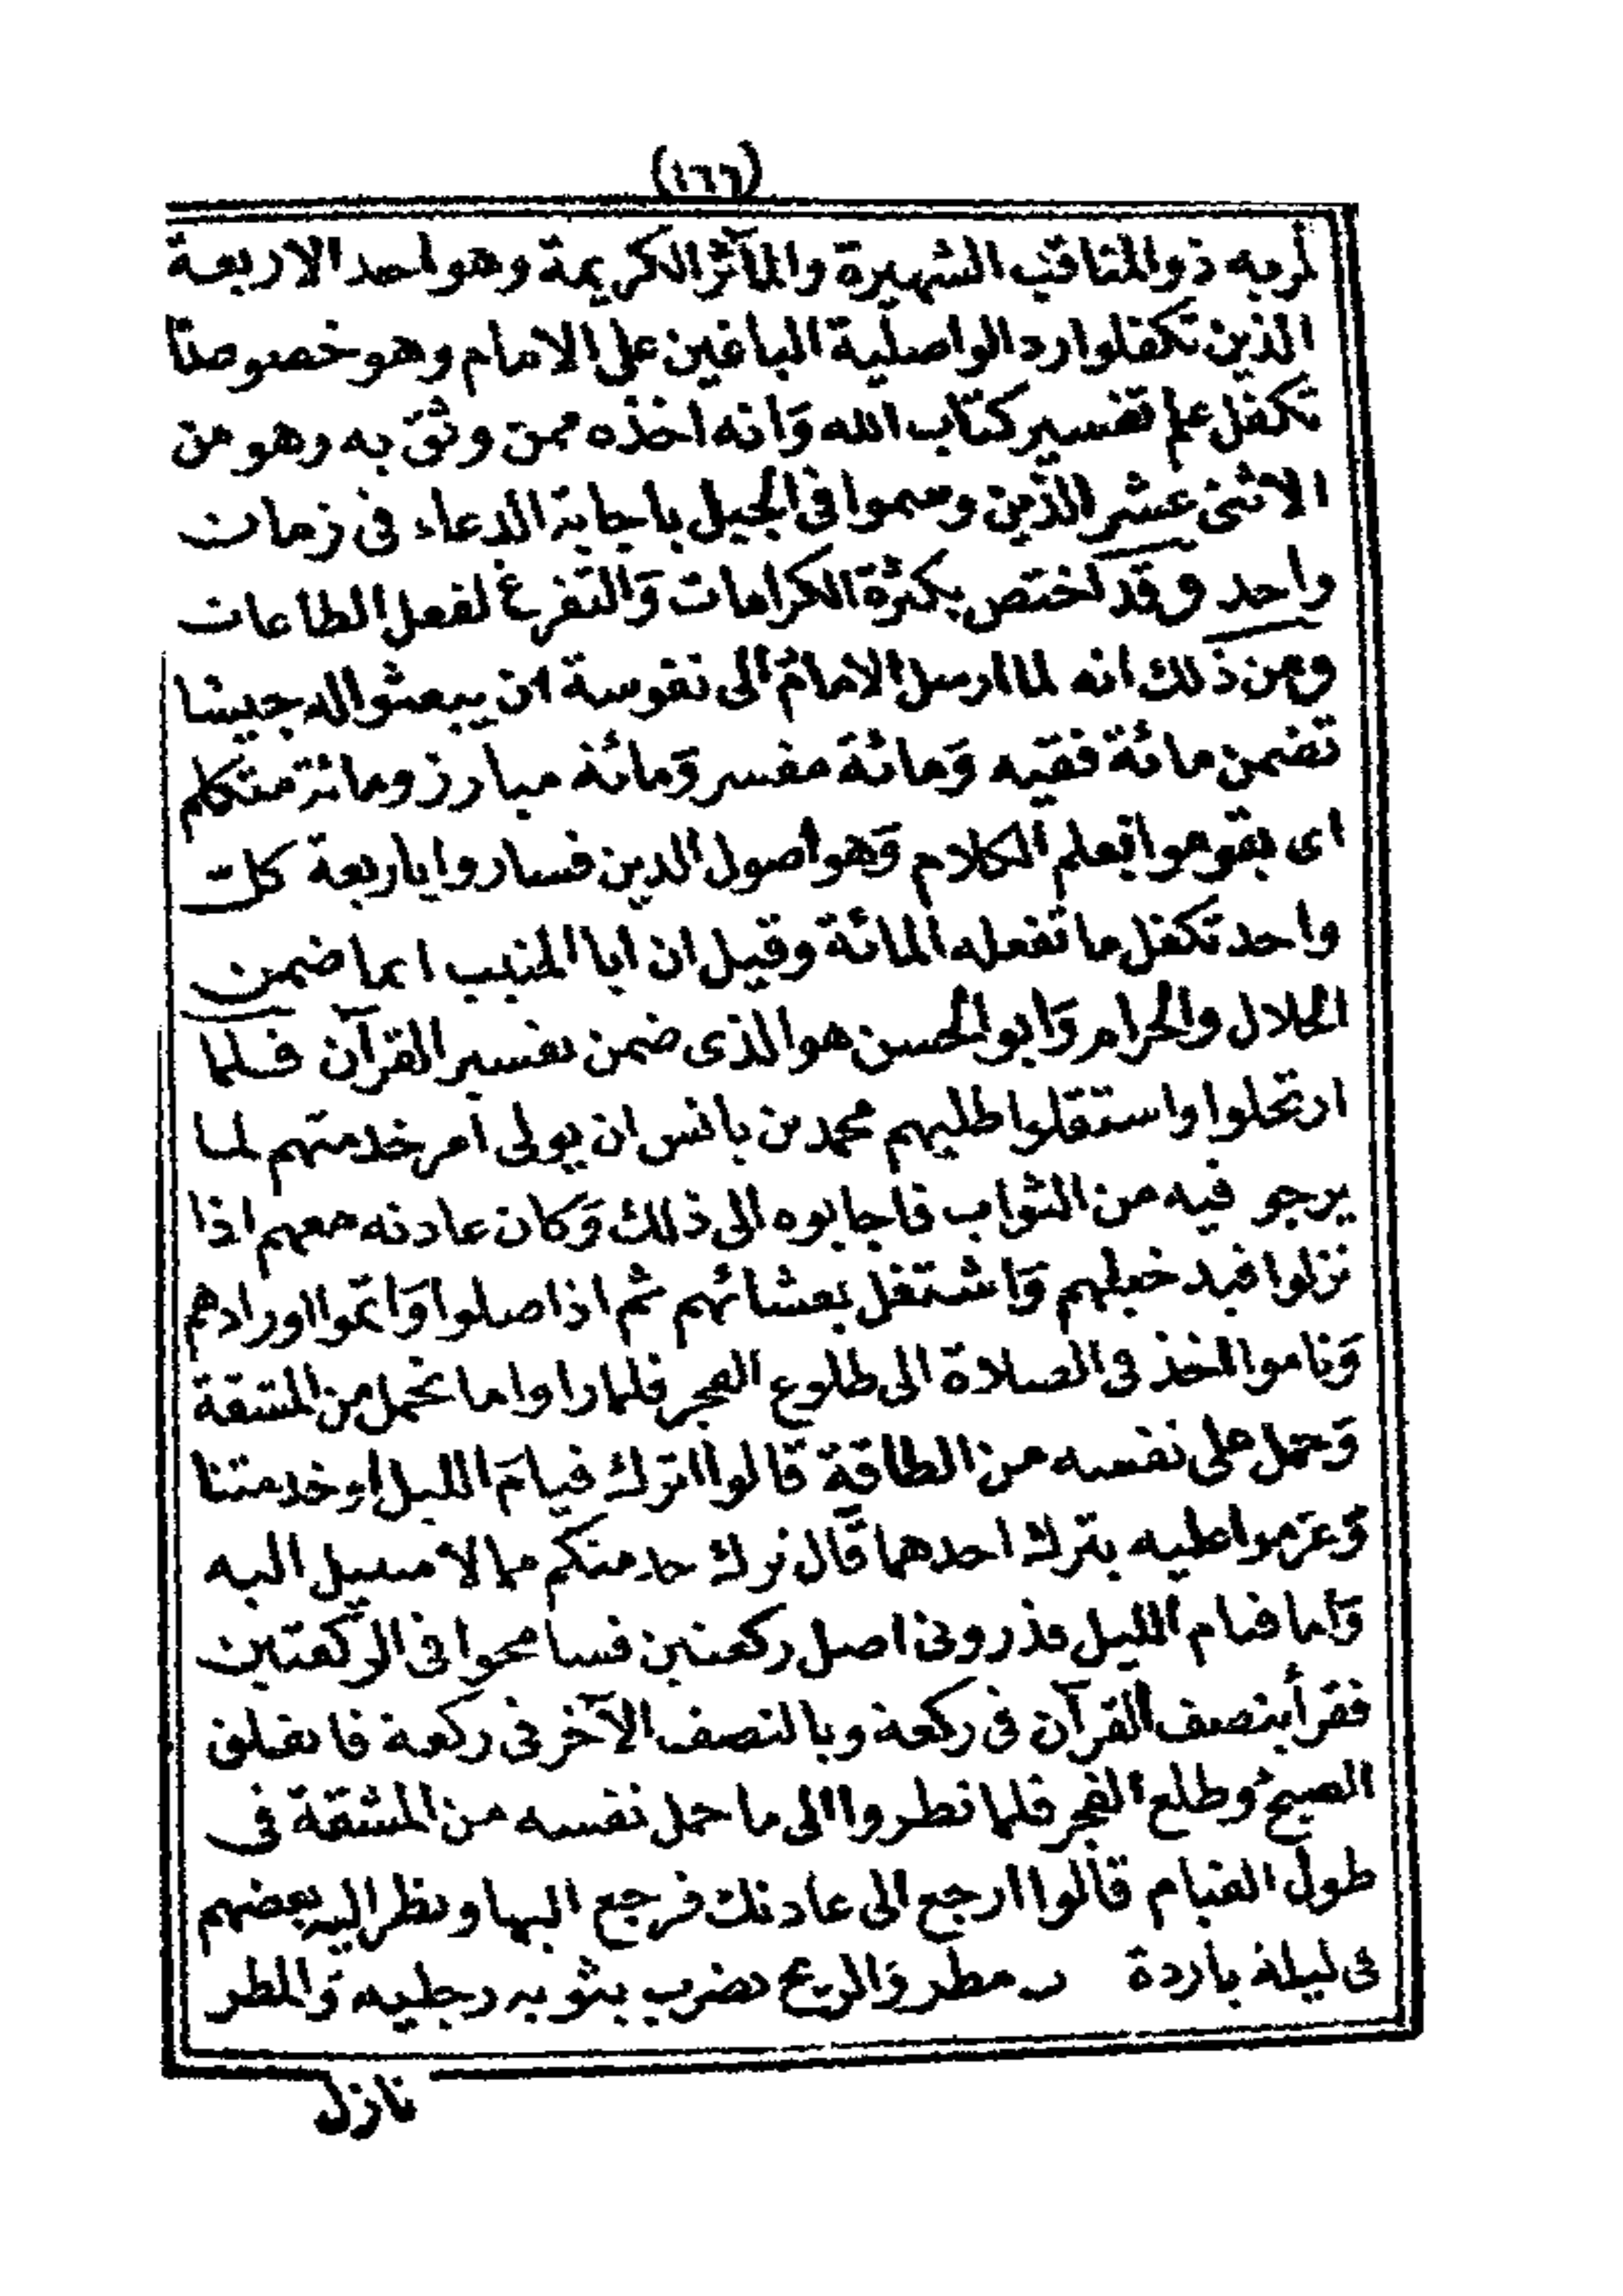 (١٦٦)
لربه ذو المناقب الشهيرة والمآثر الكريمة وهو احد الاربعة
الذين تكفلوا رد الواصلية الباغين على الامام وهو خصوصا
تكفل علم تفسير كتاب الله وَانه اخذه ممن وثق به وهو من
الاثنى عشر الذين وسموا فى الجبل باجابة الدعاء فى زمان
واحد وقد اختص بكثرة الكرامات وَالتفرغ لفعل الطاعات
ومن ذلك انه لما ارسل الامام الى نفوسة ان يبعثوا اليه جيشا
تضمن مائة فقيه وَمائة مفسر وَمائة مبارز ومائة متكلم
اى يقوموا بعلم الكلام وَهو اصول الدين فساروا باربعة كل
واحد تكفل ما تفعله المائة وقيل ان ابا المنيب انما ضمن
الحلال والحرام وَابو الحسن هو الذى ضمن تفسير القرآن فلما
ارتحلوا واستقلوا طلبهم محمد بن يانس ان يولى امر خدمتهم لما
يرجو فيه من الثواب فاجابوه الى ذلك وَكان عادته معهم اذا
نزلوا قيد خيلهم وَاشتغل بعشائهم ثم اذا صلوا وَاتموا اورادهم
وَناموا اخذ فى الصلاة الى طلوع الفجر فلما راوا ما تحمل من المشقة
وَحمل على نفسه من الطاقة قالوا اترك قيام الليل او خدمتنا
وَعزموا عليه بترك احدهما قال ترك خدمتكم مما لا سبيل اليه
وَاما قيام الليل فذرونى اصل ركعتين فسامحوا فى الركعتين
فقرأ بنصف القرآن فى ركعة وبالنصف الآخر فى ركعة فانفلق
الصبح وطلع الفجر فلما نظروا الى ما حمل نفسه من المشقة فى
طول القيام قالوا ارجع الى عادتك فرجع اليها ونظر اليه بعضهم
فى ليلة باردة مطر وَالريح تضرب بثوبه رجليه وَالمطر
نازل